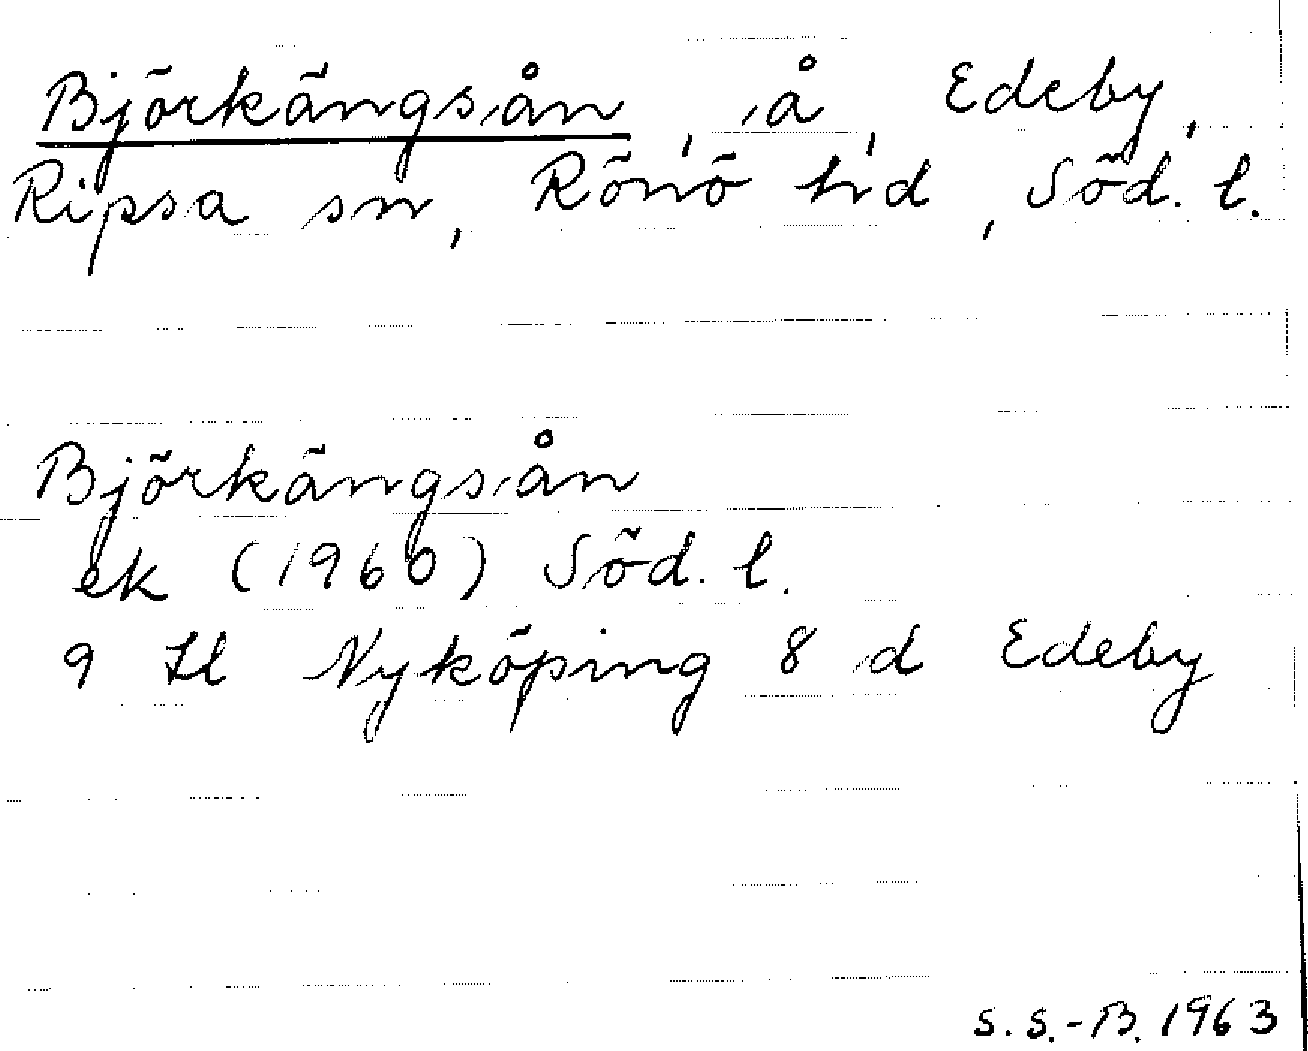 Björkängsån, å, Edeby,
Ripsa sn, Rönö hd, Söd. l.
Björkängsån
ek (1960) Söd. l.
9 Nyköping 8 d Edeby
S. S.-B. 1963